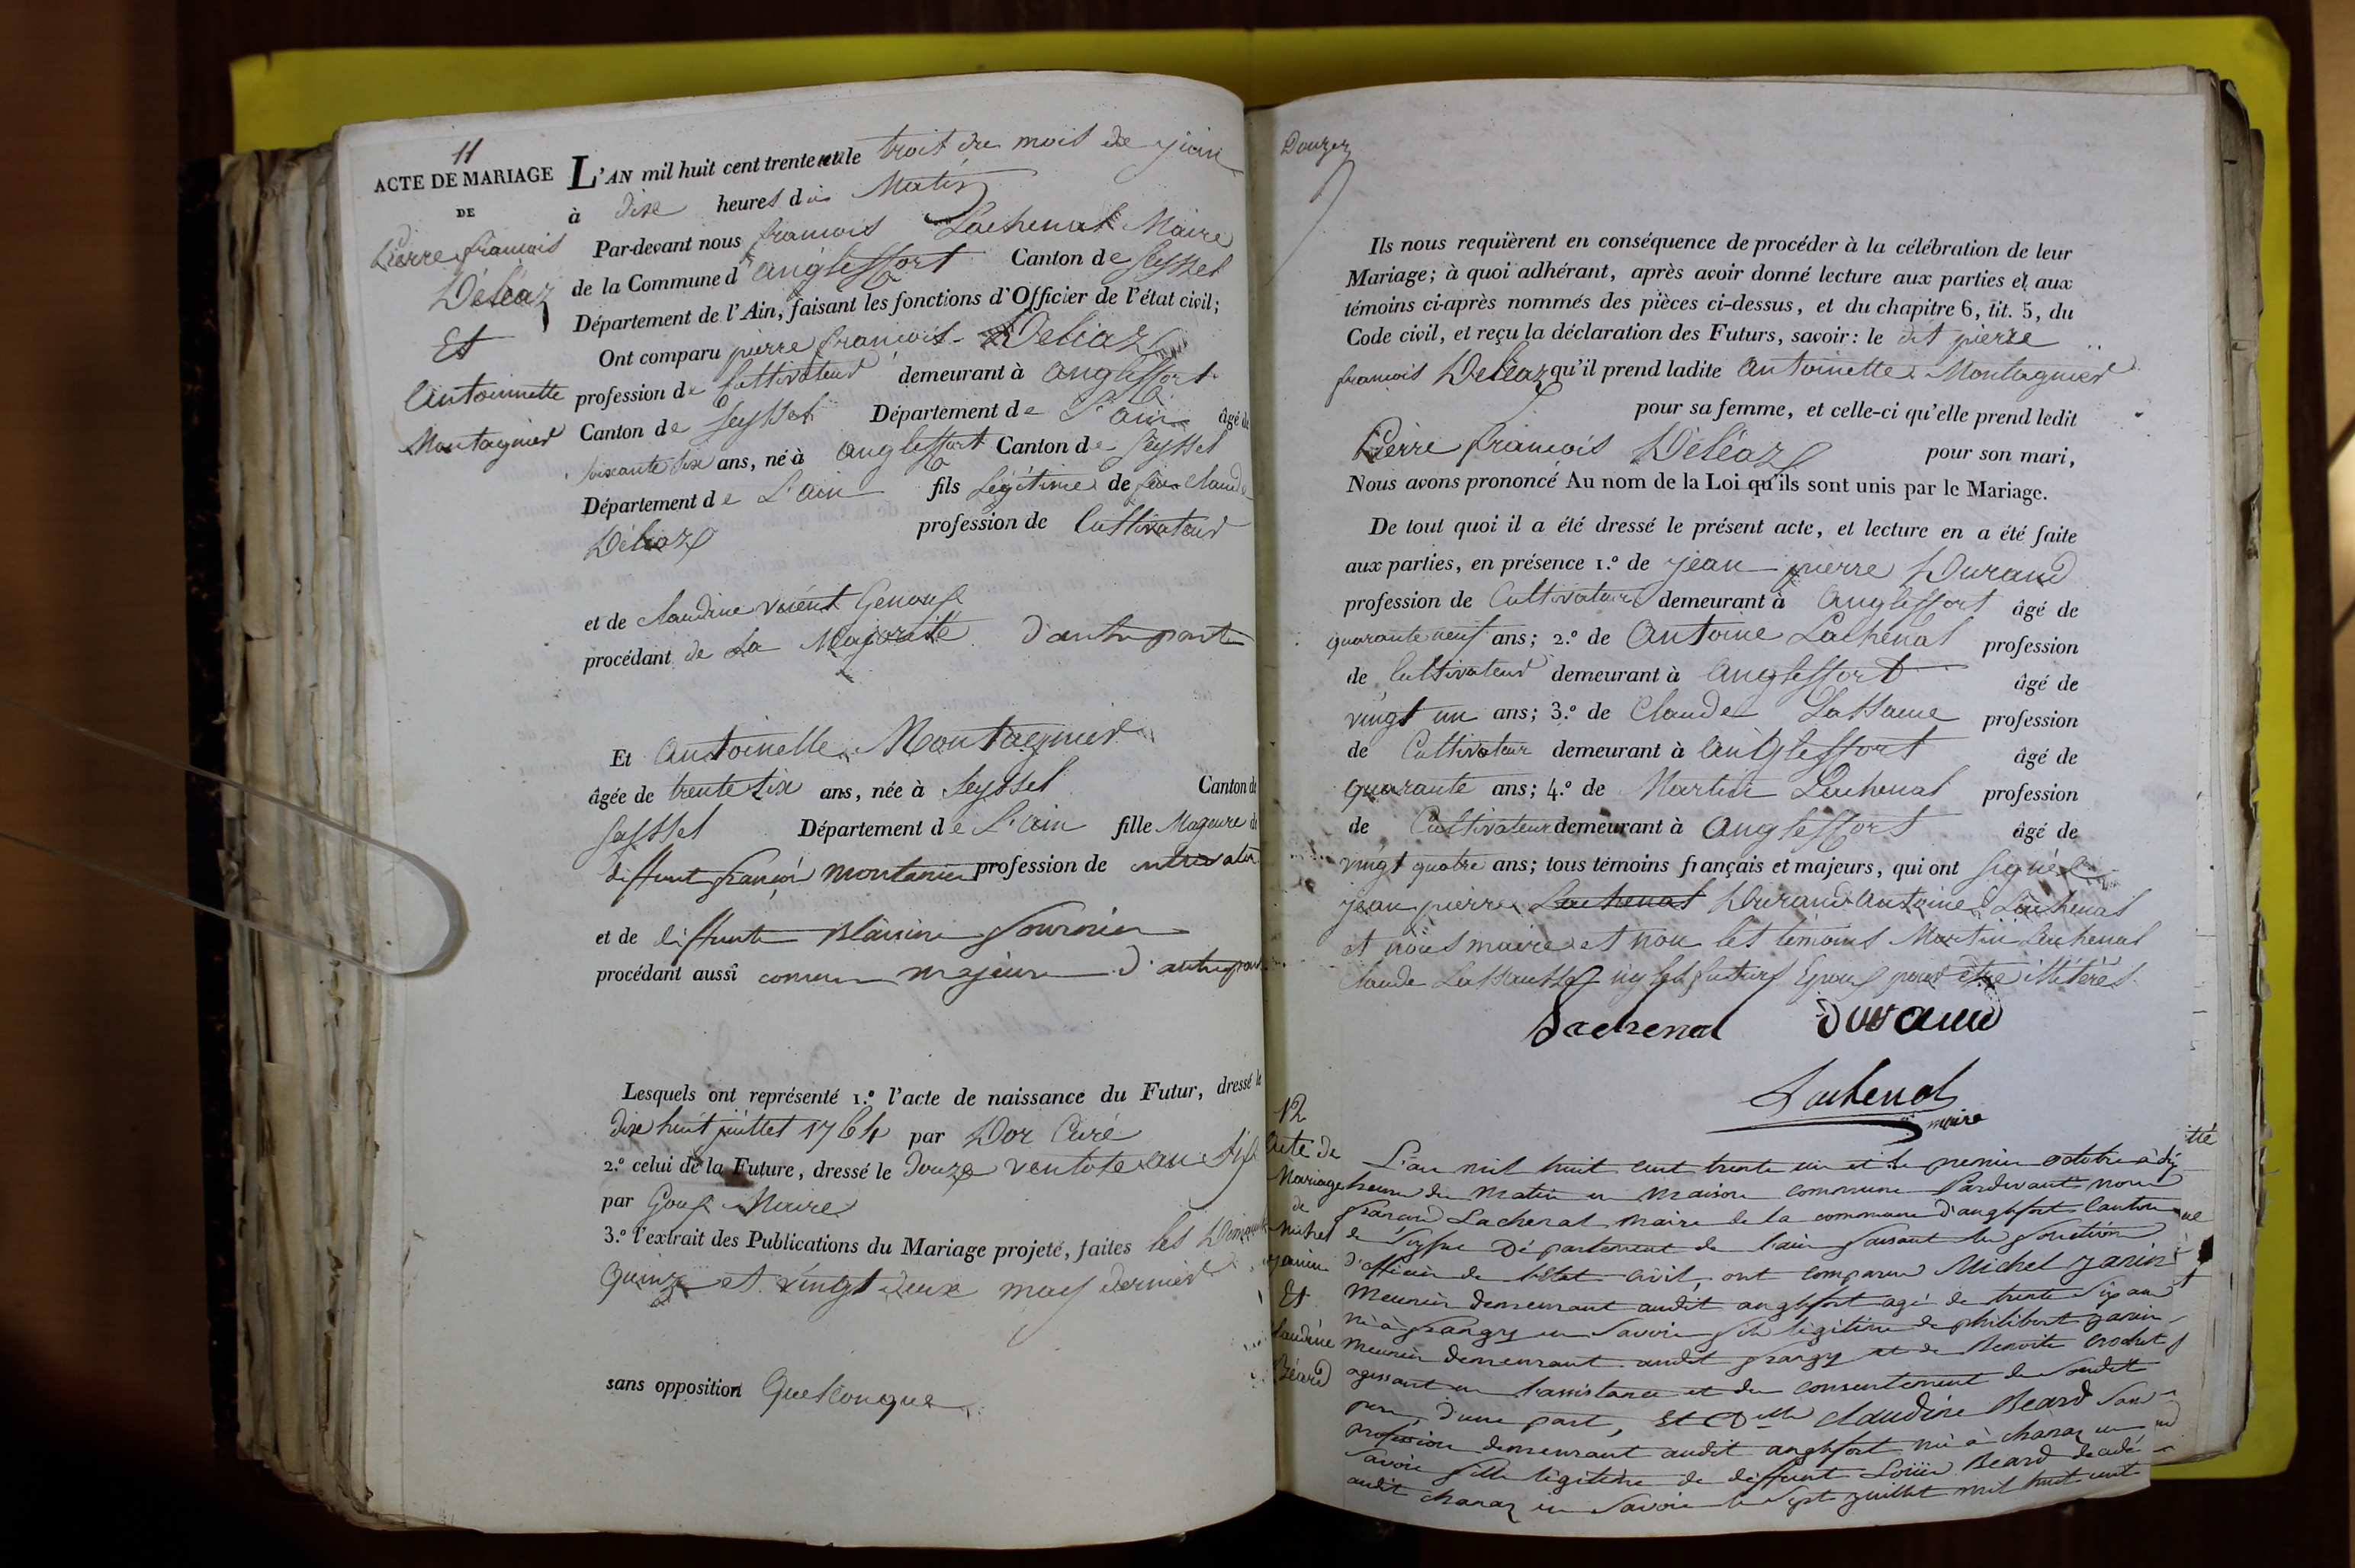 11
ACTE DE MARIAGE
DE
Pierre francois
Déléaz
Et
Antoinnette
Montagnier
L'AN mil huit cent trente et le trois du mois de juin
à dix heures du Matin
Par-devant nous francois Lachenal Maire
de la Commune d'anglefort Canton de Seyssel
Département de l'Ain, faisant les fonctions d'Officier de l'état civil;
Ont comparu pierre francois Deliaz
profession de Cultivateur demeurant à anglefort
Canton de Seyssel Département de L'ain âgé de
soixante six ans, né à anglefort Canton de Seyssel
Département de L'ain fils légitime de Claude
Déliaz profession de Cultivateur
et de Claudine
procédant de La Majorité d'autre part
Et Antoinette Montagnier
âgée de trente six ans, née à Seyssel Canton de
Seyssel Département de L'ain fille Majeure de
deffunt françois montanier profession de
et de deffunte Blaisine fournier
procédant aussi comme majeure d'autre part
Lesquels ont représenté 1.º l'acte de naissance du Futur, dressé le
dix huit juillet 1764 par Dor Curé
2.º celui de la Future, dressé le douze ventote an
par Maire
3.º l'extrait des Publications du Mariage projeté, faites les Dimanche
Quinze et vingt deux may dernier
sans opposition Quelconque
Douzez
Ils nous requièrent en conséquence de procéder à la célébration de leur
Mariage; à quoi adhérant, après avoir donné lecture aux parties et aux
témoins ci-après nommés des pièces ci-dessus, et du chapitre 6, tit. 5, du
Code civil, et reçu la déclaration des Futurs, savoir: le dit pierre
francois Deléaz qu'il prend ladite Antoinette Montagnier
pour sa femme, et celle-ci qu'elle prend ledit
Pierre francois Déléaz pour son mari,
Nous avons prononcé Au nom de la Loi qu'ils sont unis par le Mariage.
De tout quoi il a été dressé le présent acte, et lecture en a été faite
aux parties, en présence 1.º de jean pierre Durand
profession de Cultivateur demeurant à Anglefort âgé de
quarante neuf ans; 2.º de Antoine Lachenal profession
de Cultivateur demeurant à Anglefort âgé de
vingt un ans; 3.º de Claude profession
de Cultivateur demeurant à Anglefort âgé de
quarante ans; 4.º de Martin Lachenal profession
de Cultivateur demeurant à Anglefort âgé de
vingt quatre ans; tous témoins français et majeurs, qui ont signés
jean pierre Lachenal Durand Antoine Lachenal
et nous maire et non les témoins Martin Lachenal
Claude ny les futurs Epoux pour être illitérés
Lachenal Durand
Lachenal
maire
12
Acte de
Mariage
de
Michel
janin
Et
Claudine
Béard
L'an mil huit cent trente un et le premier octobre à dix
heures du matin en maison commune Pardevant nous
françois Lachenal maire de la commune d'anglefort Canton
de Seyssel Département de l'ain faisant les fonctions
d'officier de l'état civil, ont comparu Michel janin
Meunier demeurant audit anglefort agé de trente six ans
né à frangy en Savoie fils légitime de philibert janin
meunier demeurant audit frangy et de Benoite Crochet
agissant en l'assistance et du consentement de Sondit
pere, d'une part, Et Claudine Beard Sans
profession demeurant audit anglefort née à chanaz en
Savoie fille légitime de deffunt Louis Beard decedé
audit chanaz en Savoie le sept juillet mil huit cent